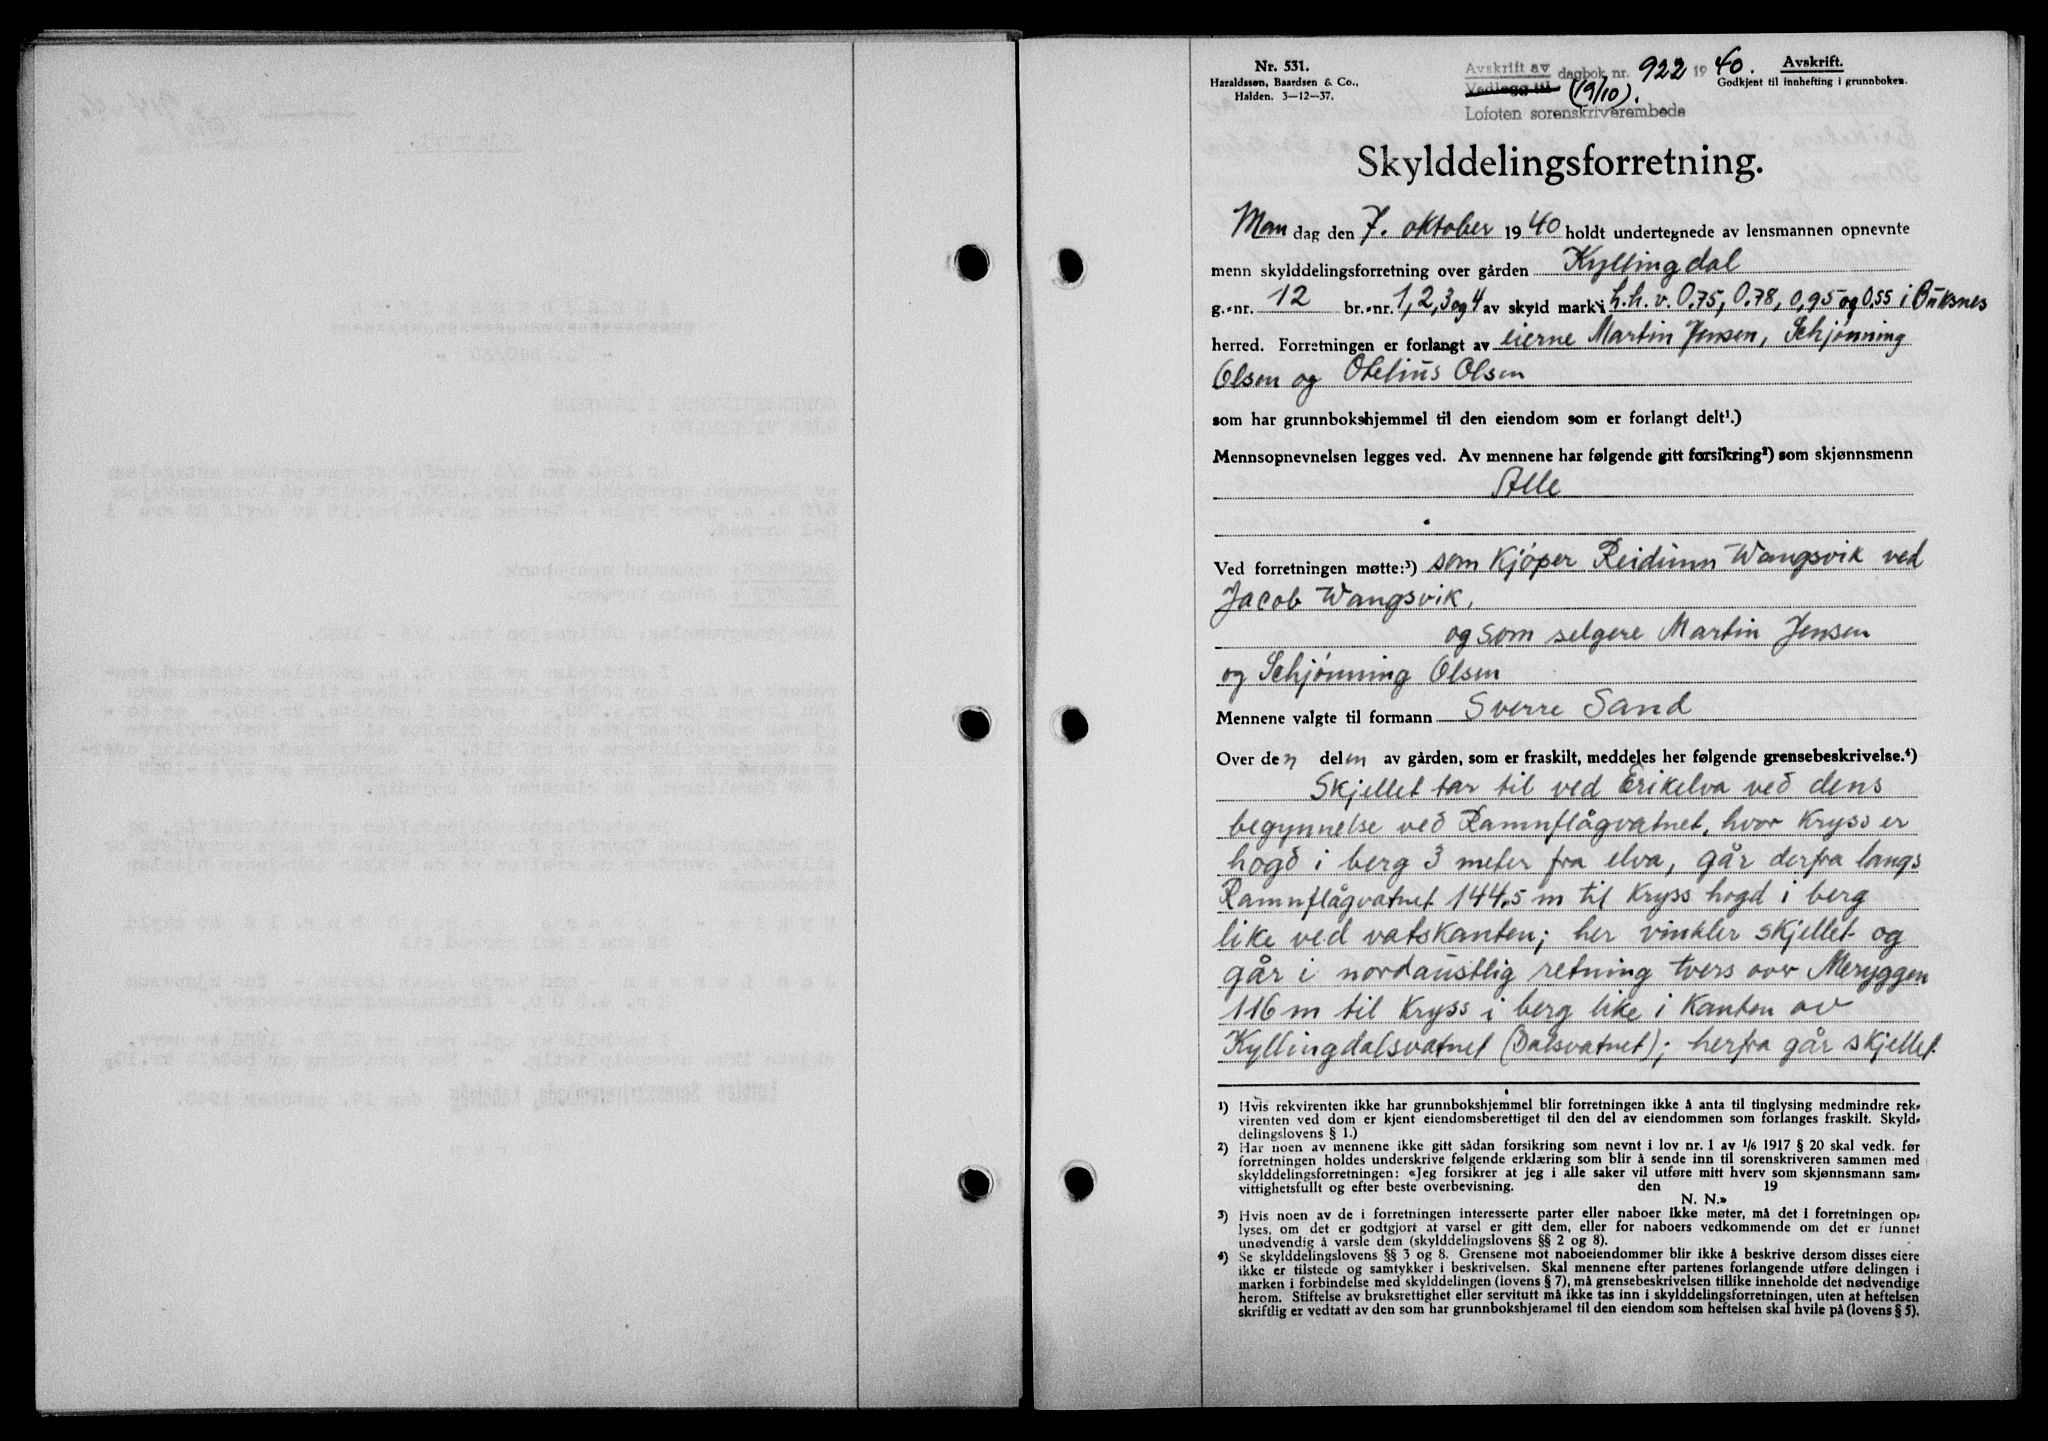 Nr. 531.
Haraldssen, Baardsen & Co.,
Halden. 3—12—37.
Avskrift av
Vedlegg til
dagbok nr. 922 1940.
(19/10).
Lofoten sorenskriverembede
Avskrift.
Godkjent til innhefting i grunnboken.
Skylddelingsforretning.
Man dag den 7. oktober 1940 holdt undertegnede av lensmannen opnevnte
menn skylddelingsforretning over gården Kyllingdal
g.-nr. 12 br.-nr. 1, 2, 3 og 4 av skyld mark h.h.v. 0.75, 0.78, 0,95 og 0.55 i Buksnes
herred. Forretningen er forlangt av eierne Martin Jensen, Schjønning
Olsen og Otelius Olsen
som har grunnbokshjemmel til den eiendom som er forlangt delt¹.)
Mennsopnevnelsen legges ved. Av mennene har følgende gitt forsikring²) som skjønnsmenn
Alle
Ved forretningen møtte:³) som kjøper Reidunn Wangsvik ved
Jacob Wangsvik,
og som selgere Martin Jensen
og Schjønning Olsen
Mennene valgte til formann Sverre Sand
Over den delen av gården, som er fraskilt, meddeles her følgende grensebeskrivelse.⁴)
Skjellet tar til ved Erikelva ved dens
begynnelse ved Ramnflågvatnet, hvor kryss er
hogd i berg 3 meter fra elva, går derfra langs
Ramnflågvatnet 144,5 m til kryss hogd i berg
like ved vatskanten; her vinkler skjellet og
går i nordaustlig retning tvers over Meryggen
116 m til kryss i berg like i kanten av
Kyllingdalsvatnet (Dalsvatnet); herfra går skjellet
¹) Hvis rekvirenten ikke har grunnbokshjemmel blir forretningen ikke å anta til tinglysing medmindre rek-
virenten ved dom er kjent eiendomsberettiget til den del av eiendommen som forlanges fraskilt. Skyld-
delingslovens § 1.)
²) Har noen av mennene ikke gitt sådan forsikring som nevnt i lov nr. 1 av 1/6 1917 § 20 skal vedk. før
forretningen holdes underskrive følgende erklæring som blir å sende inn til sorenskriveren sammen med
skylddelingsforretningen: «Jeg forsikrer at jeg i alle saker vil utføre mitt hverv som skjønnsmann sam-
vittighetsfullt og efter beste overbevisning. den 19
N. N.»
³) Hvis noen av de i forretningen interesserte parter eller naboer ikke møter, må det i forretningen op-
lyses, om det er godtgjort at varsel er gitt dem, eller for naboers vedkommende om det er funnet
unødvendig å varsle dem (skylddelingslovens §§ 2 og 8).
⁴) Se skylddelingslovens §§ 3 og 8. Grensene mot naboeiendommer blir ikke å beskrive dersom disses eiere
ikke er tilstede og samtykker i beskrivelsen. Skal mennene efter partenes forlangende utføre delingen i
marken i forbindelse med skylddelingen (lovens § 7), må grensebeskrivelsen tillike inneholde det nødvendige
herom. Stiftelse av bruksrettighet eller servitutt må ikke tas inn i skylddelingsforretningen, uten at heftelsen
skriftlig er vedtatt av den som har grunnbokshjemmel til den eiendom som heftelsen skal hvile på (lovens § 5).